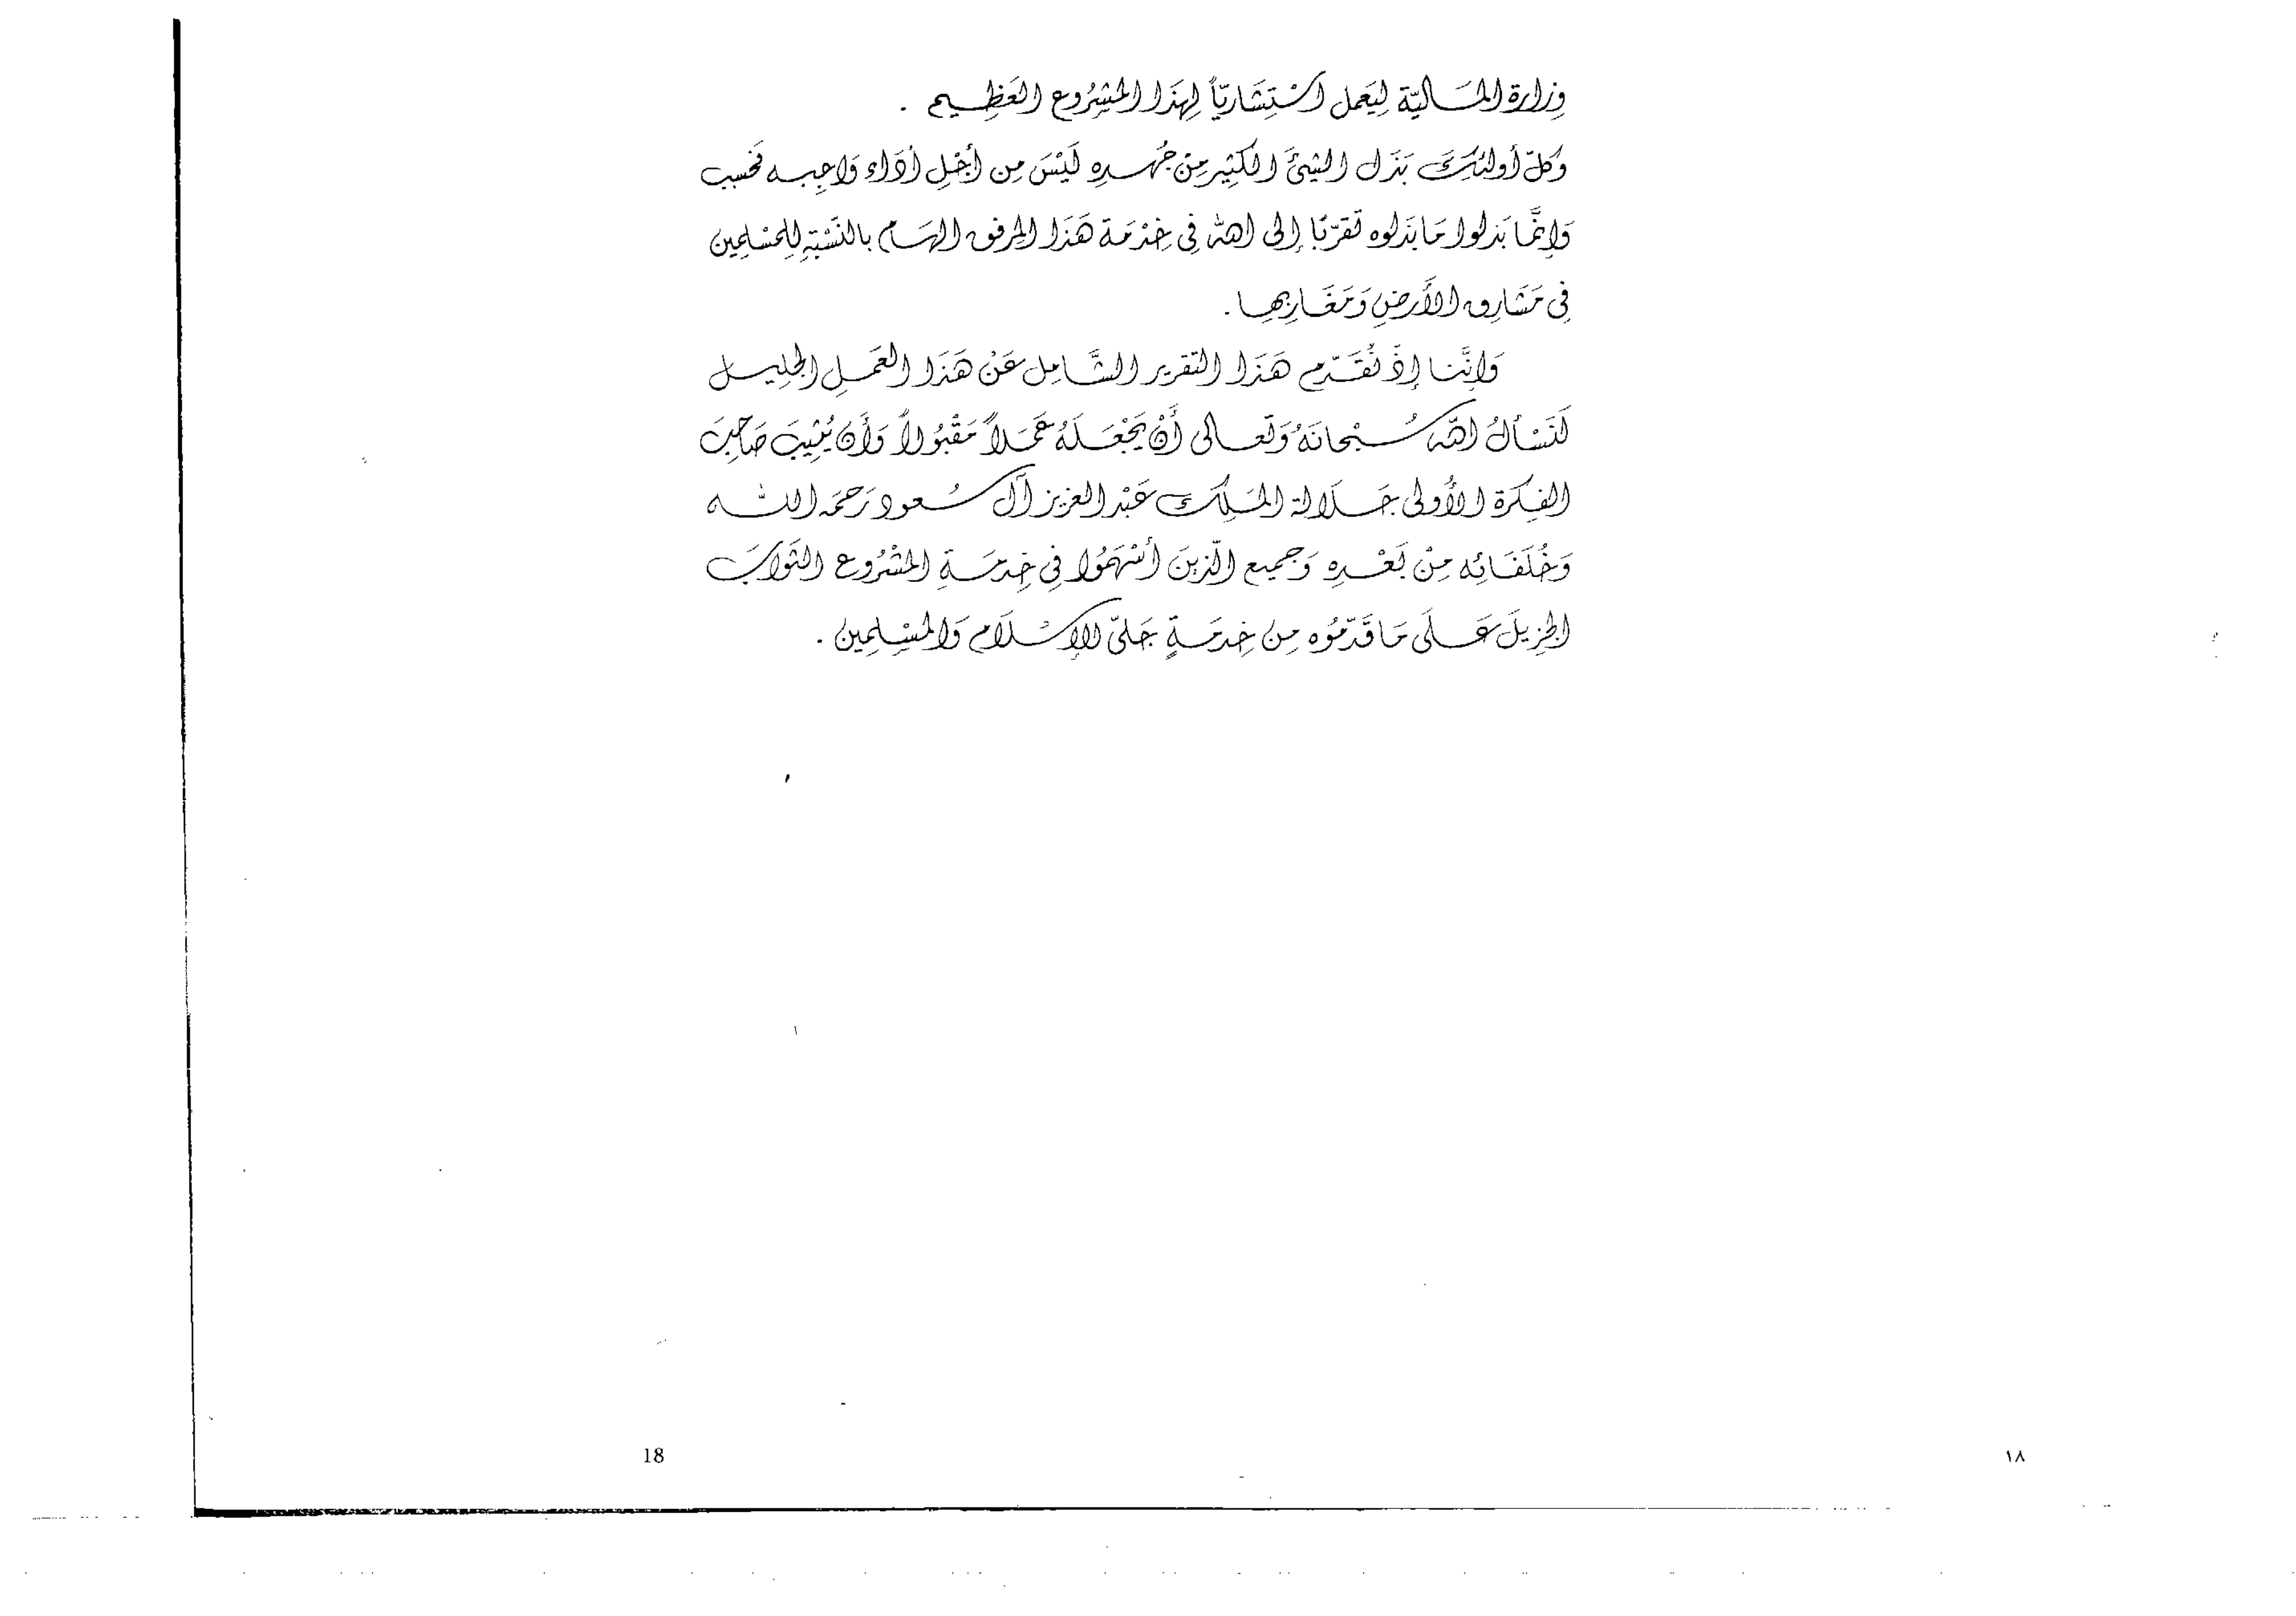 وزارة المالية ليعمل استشارياً لهذا المشروع العظيم .
وكلّ أولئك بذل الشئ الكثير من جهده ليس من أجل أداء واجبه فحسب
وإنّما بذلوا ما بذلوه تقرّبًا إلى الله في خدمة هذا المرفق الهام بالنسبة للمسلمين
في مشارق الأرض ومغاربها .
وإنّنا إذ نُقدّم هذا التقرير الشّامل عن هذا العمل الجليل
لنسألُ الله سُبحانهُ وتعالى أنْ يجعلهُ عملاً مقبولاً وأن يُثيب صاحب
الفكرة الأولى جلالة الملك عبد العزيز آل سعود رحمه الله
وخُلفائه منْ بعْده وجميع الّذين أسْهمُوا في خدمة المشرُوع الثواب
الجزيل على ما قدّمُوه من خدمةٍ جلّى للإسلام والمسلمين .
18
١٨